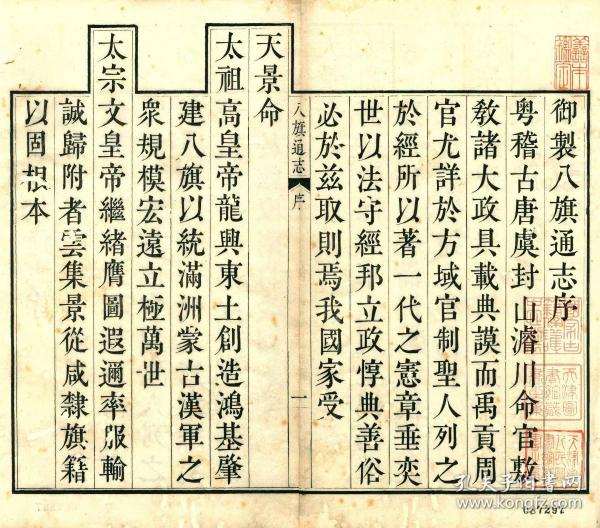 御製八旗通志序
粵稽古唐虞封山濬川命官敷
敎諸大政具載典謨而禹貢周
官尤詳於方域官制聖人列之
於經所以著一代之憲章垂奕
世以法守經邦立政惇典善俗
必於兹取則焉我國家受
八旗通志 序 一
天景命
太祖高皇帝龍興東土創造鴻基肇
建八旗以統滿洲蒙古漢軍之
衆規模宏遠立極萬世
太宗文皇帝繼緒膺圖遐邇率服輸
誠歸附者雲集景從咸隸旗籍
以固根本
孔夫子旧书网
kongfz.com